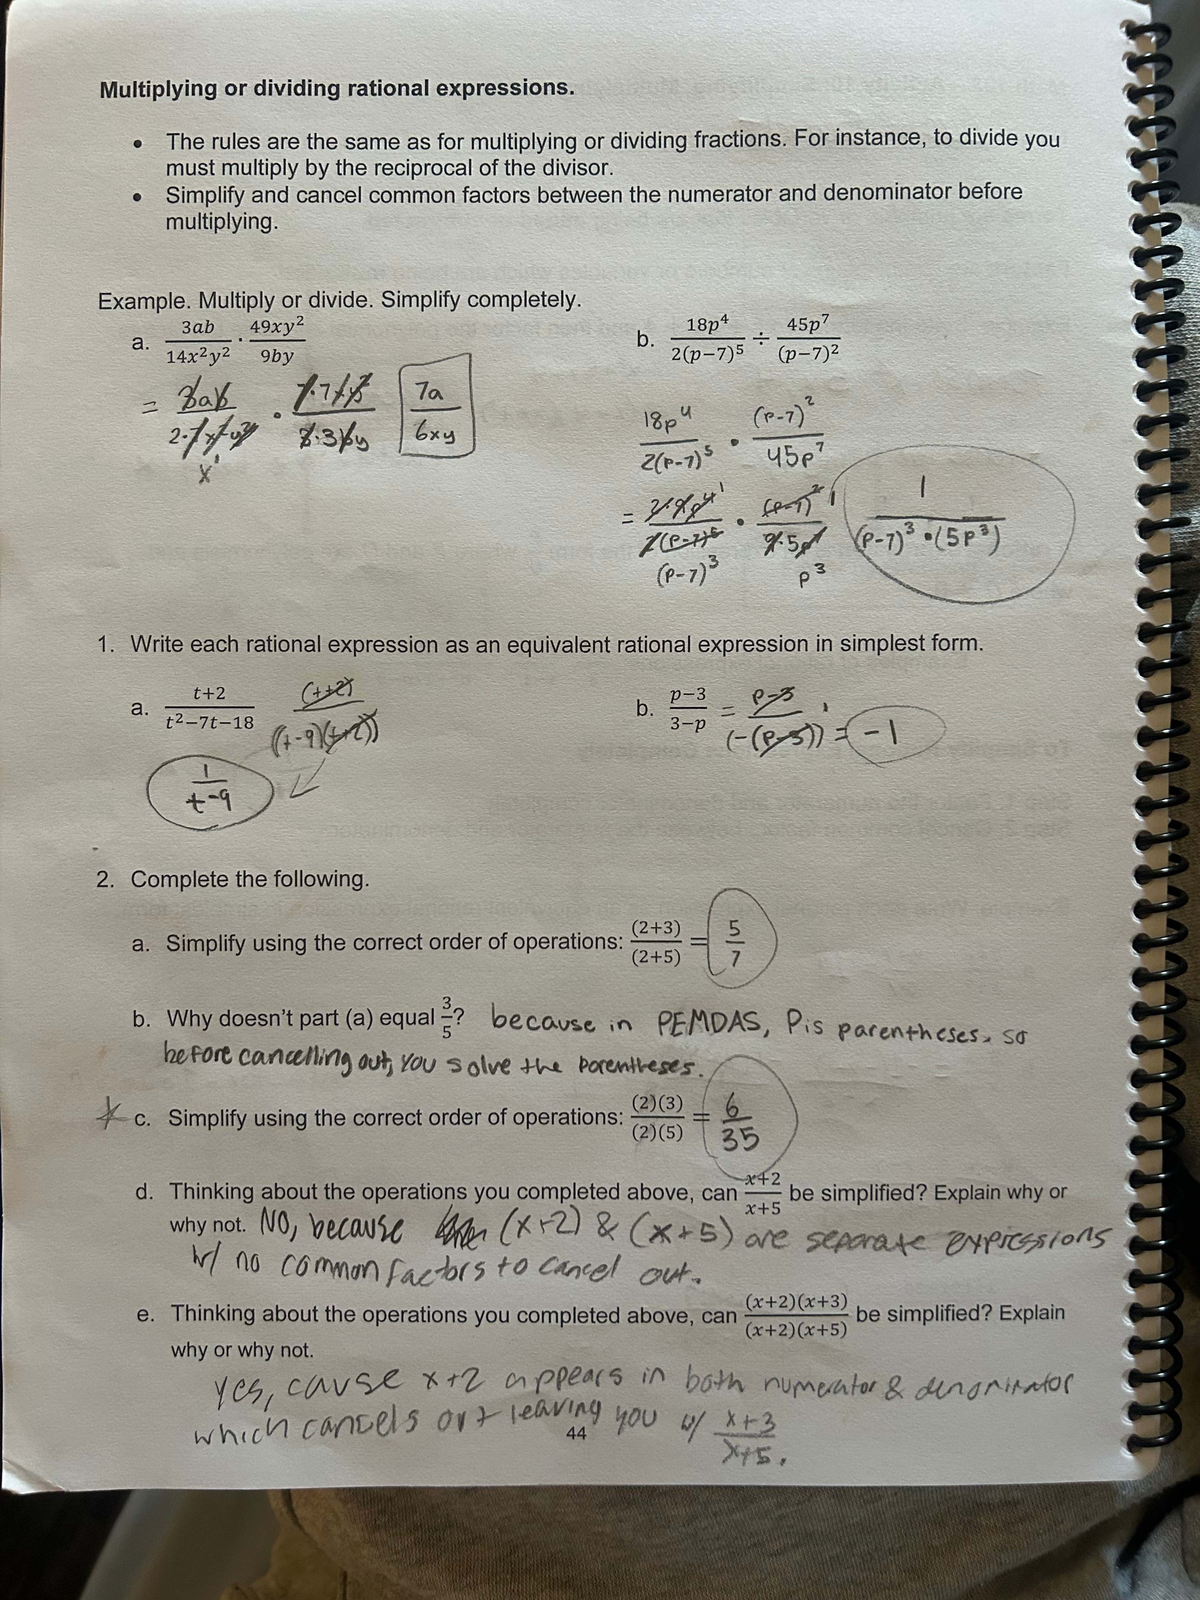 Multiplying or dividing rational expressions.
• The rules are the same as for multiplying or dividing fractions. For instance, to divide you
must multiply by the reciprocal of the divisor.
• Simplify and cancel common factors between the numerator and denominator before
multiplying.
Example. Multiply or divide. Simplify completely.
a. 3ab/14x²y² · 49xy²/9by
= 3ab/2·7x²y² · 7·7xy²/3·3by 7a/6xy
x¹
b. 18p⁴/2(p−7)⁵ ÷ 45p⁷/(p−7)²
18p⁴/2(p-7)⁵ · (p-7)²/45p⁷
= 2·9p⁴ 1/2(p-7)⁵ · (p-7)² 1/9·5p⁷ 1/(p-7)³·(5p³)
(p-7)³ p³
1. Write each rational expression as an equivalent rational expression in simplest form.
a. t+2/t²−7t−18 (t+2)/((t-9)(t+2))
1/t-9
b. p−3/3−p = p-3/(-(p-3)) = -1
2. Complete the following.
a. Simplify using the correct order of operations: (2+3)/(2+5) = 5/7
b. Why doesn't part (a) equal 3/5? because in PEMDAS, P is parentheses, so
before cancelling out, you solve the parentheses.
c. Simplify using the correct order of operations: (2)(3)/(2)(5) = 6/35
d. Thinking about the operations you completed above, can x+2/x+5 be simplified? Explain why or
why not. NO, because (x+2) & (x+5) are separate expressions
w/ no common factors to cancel out.
e. Thinking about the operations you completed above, can (x+2)(x+3)/(x+2)(x+5) be simplified? Explain
why or why not.
yes, cause x+2 appears in both numerator & denominator
which cancels out leaving you w/ x+3/x+5.
44